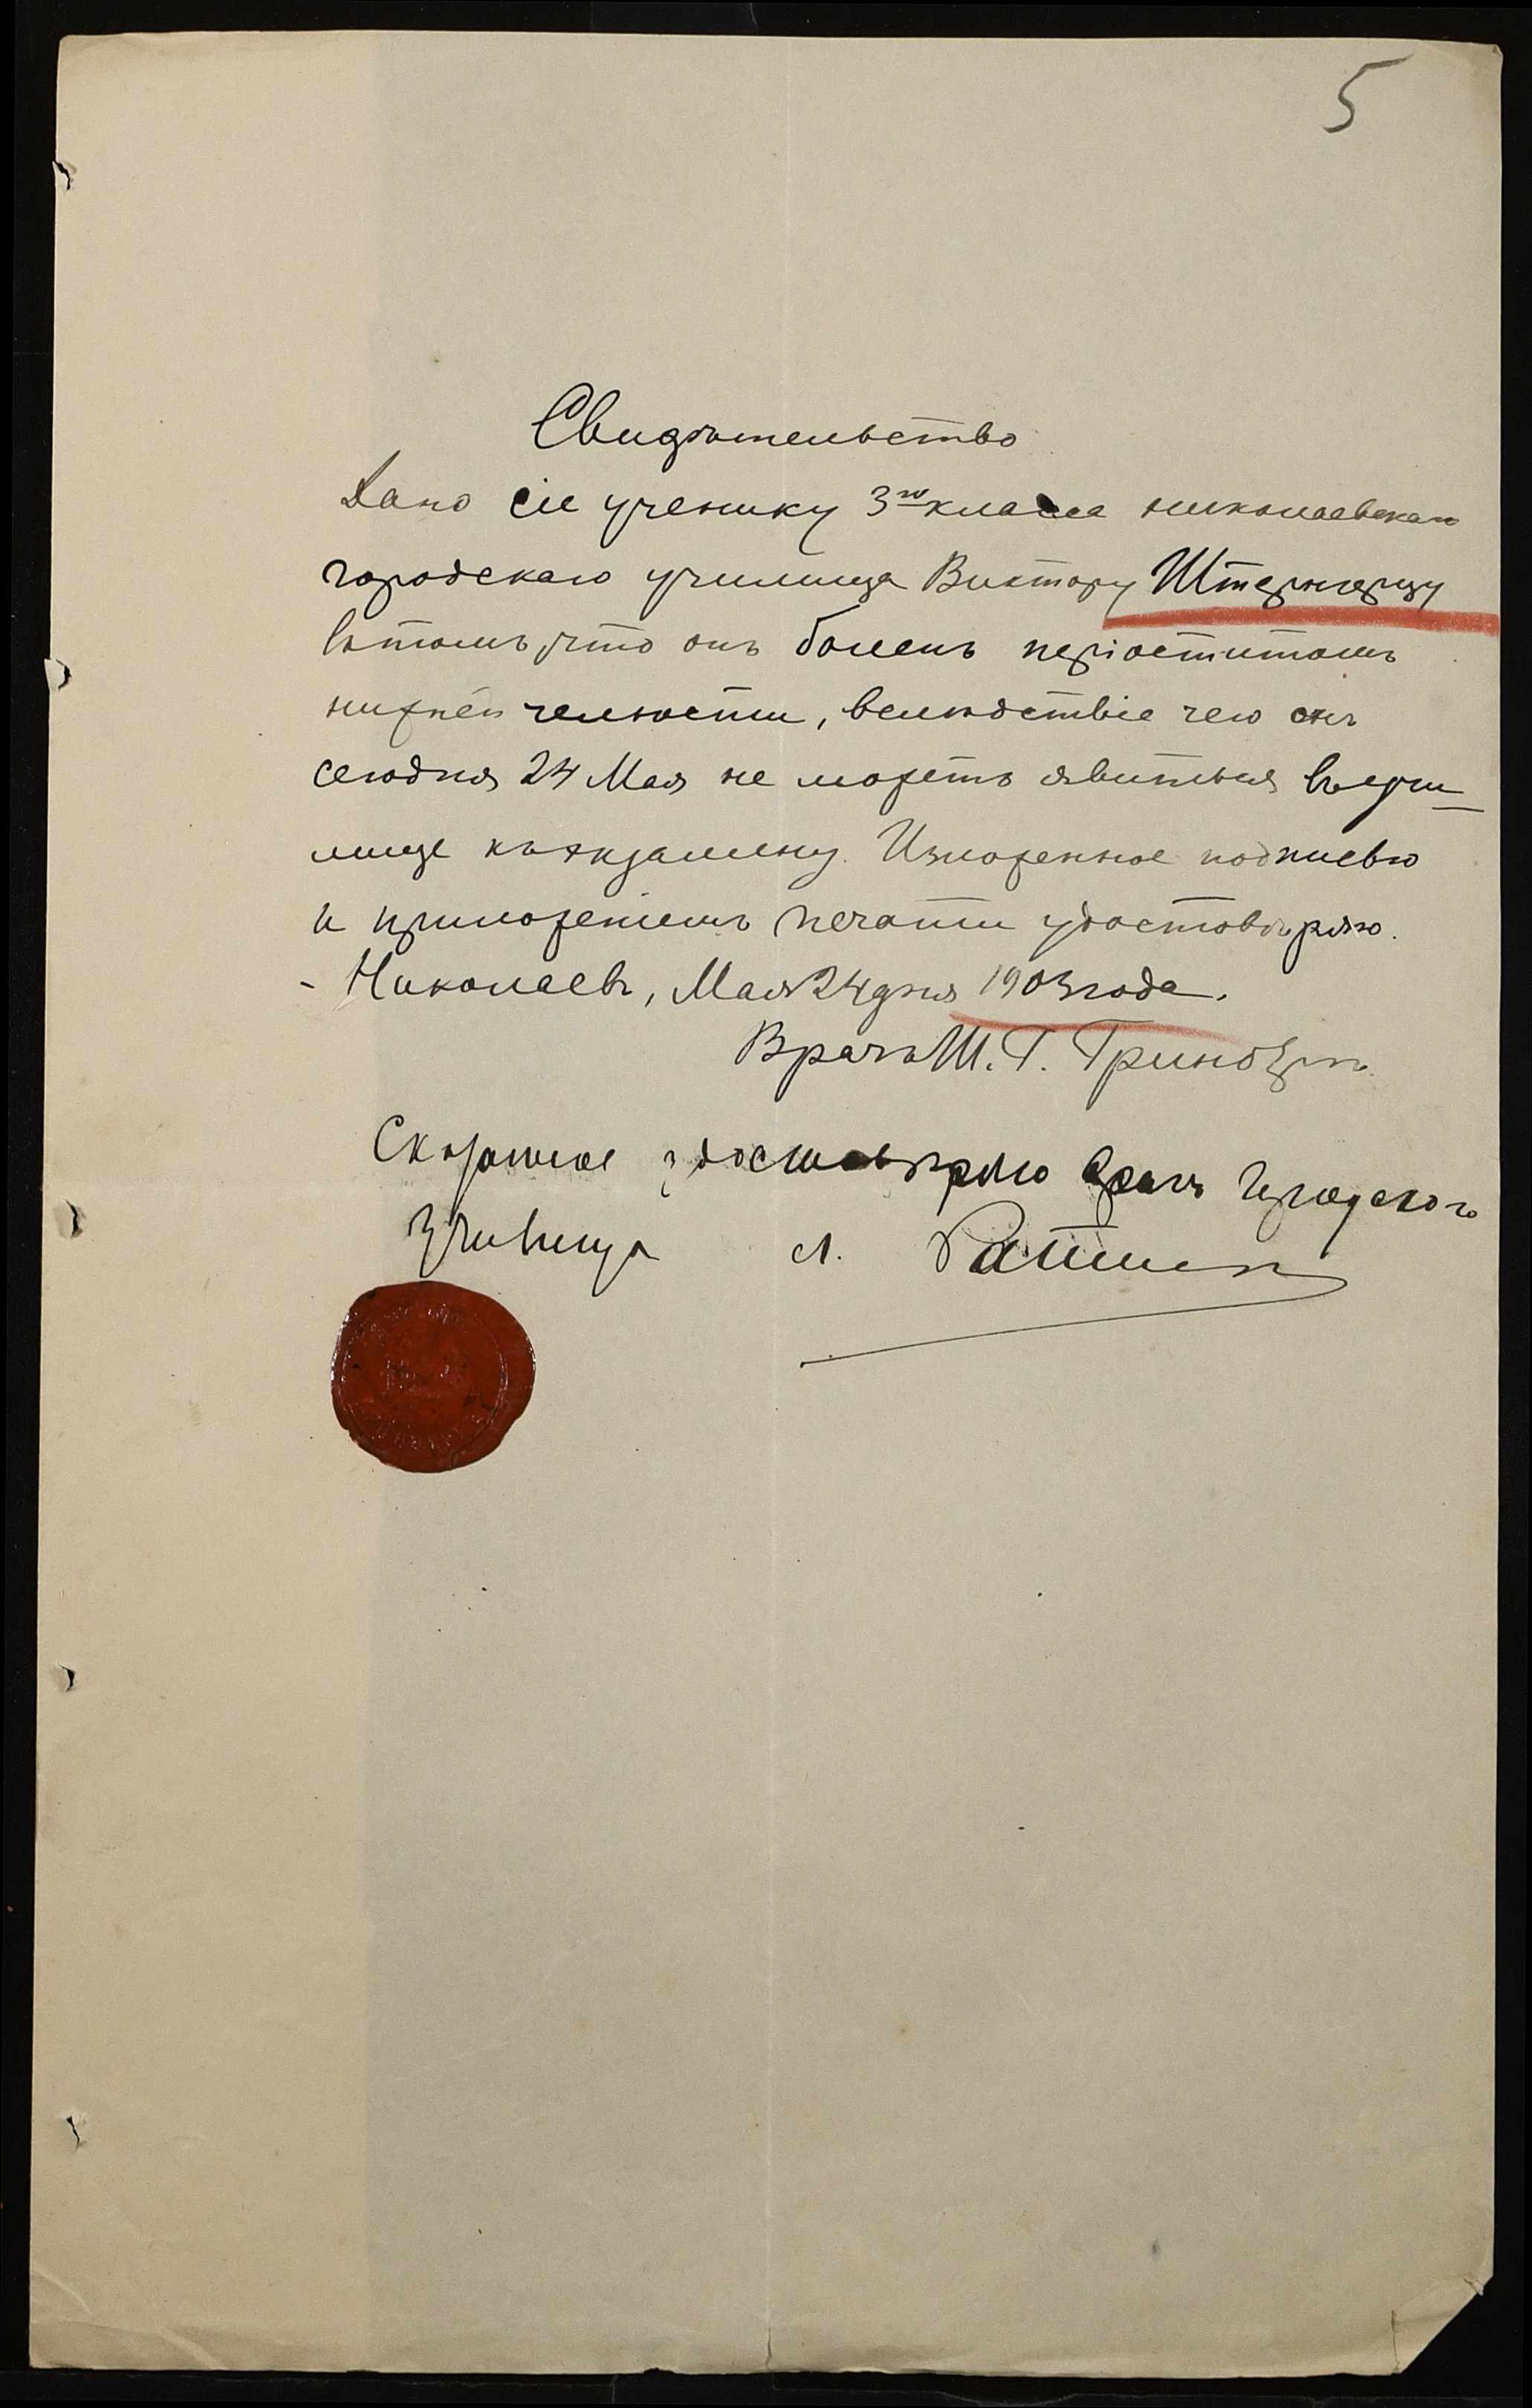 5
Свидѣтельство
Дано сіе ученику 3го класса николаевскаго
городскаго училища Виктору Штернгерцу
въ томъ, что онъ боленъ періоститомъ
нижней челюсти, вслѣдствіе чего онъ
сегодня 24 Мая не можетъ явиться въ учи-
лище къ экзамену. Изложенное подписью
и приложеніемъ печати удостовѣряю.
Николаевъ, Мая 24 дня 1903 года.
Врачъ Ш. Г. Гринбергъ
удостовѣряю врачъ Городского
Училища Л.